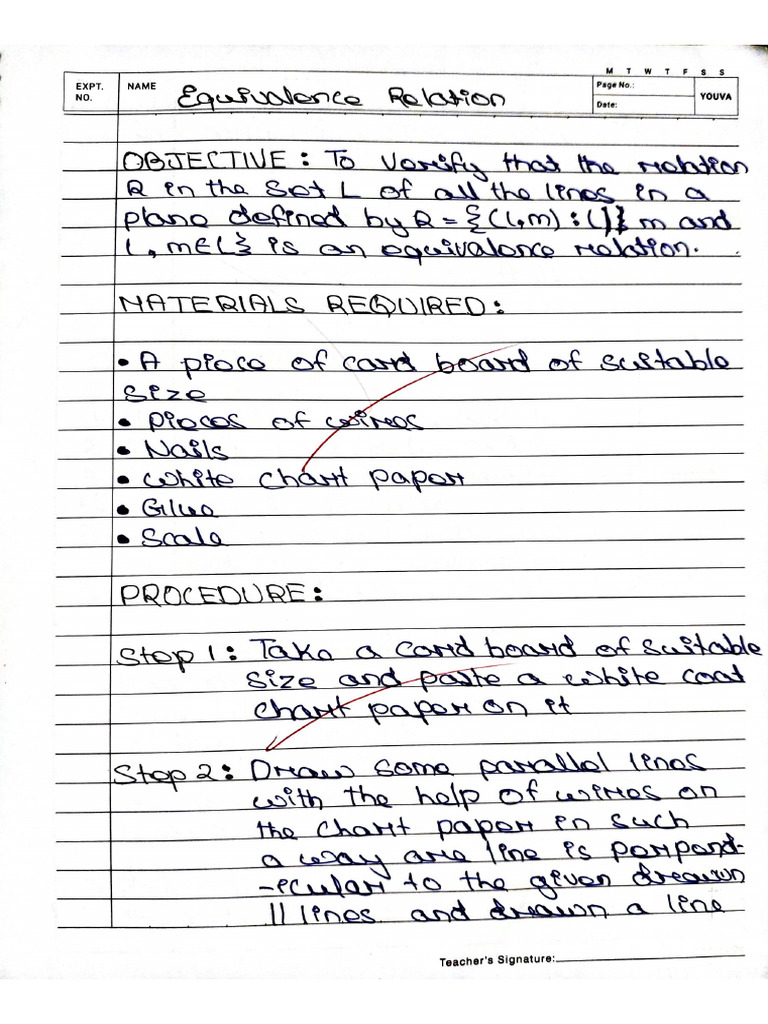 M T W T F S S
EXPT. NO. NAME Equivalence Relation Page No.: Date: YOUVA
OBJECTIVE : To verify that the relation
R in the set L of all the lines in a
plane defined by R = {(l,m) : l || m and
l, m ∈ L} is an equivalence relation.
MATERIALS REQUIRED :
• A piece of card board of suitable
size
• pieces of wires
• Nails
• white chart paper
• Glue
• Scale
PROCEDURE :
Step 1 : Take a card board of suitable
size and paste a white coat
chart paper on it
Step 2 : Draw some parallel lines
with the help of wires on
the chart paper in such
a way are line is perpend-
-icular to the given drawn
|| lines and drawn a line
Teacher's Signature: